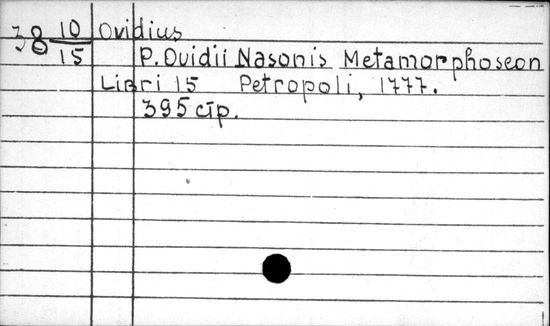 38 10/15 Ovidius
P. Ovidii Nasonis Metamorphoseon
Libri 15 Petropoli, 1777.
395 стр.